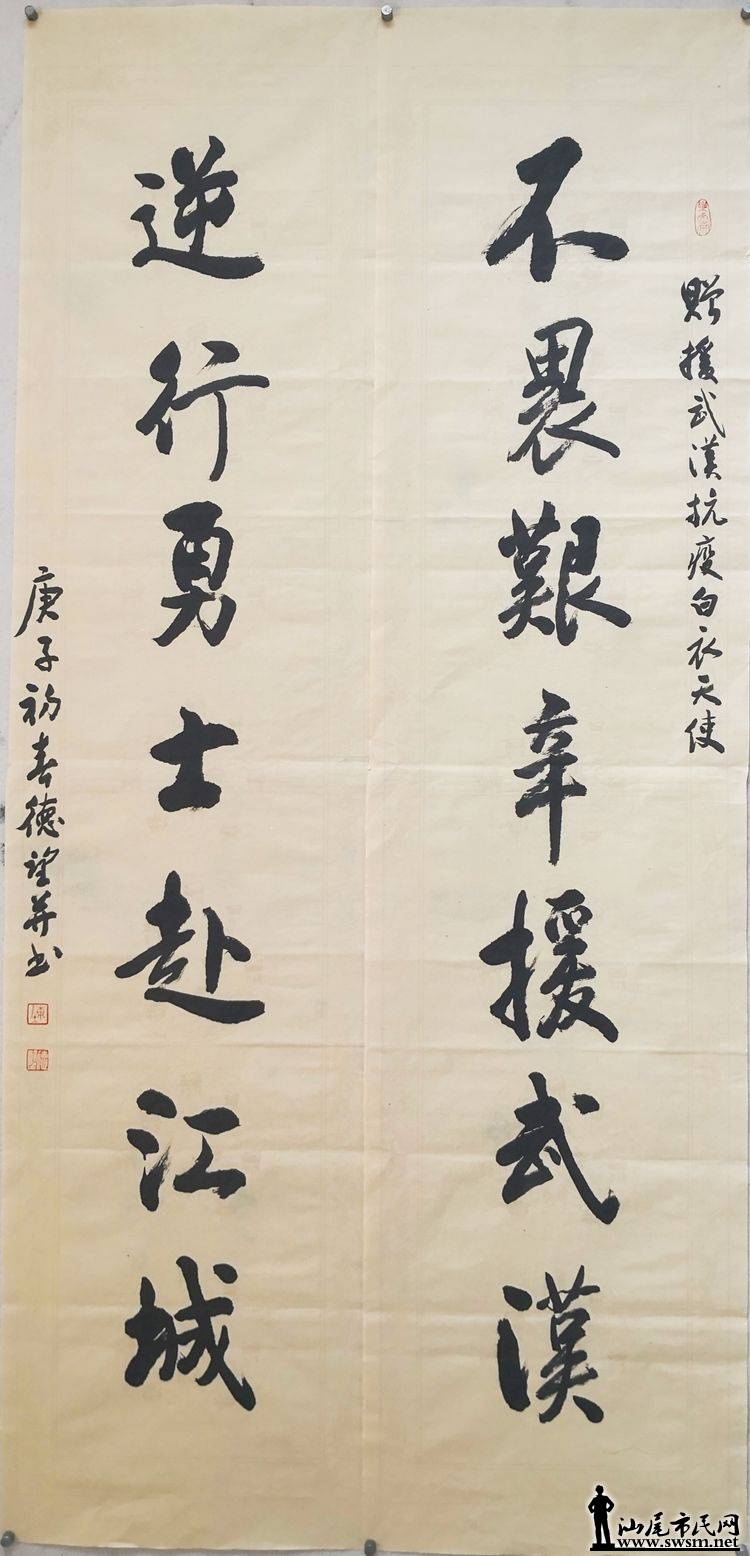 贈援武漢抗疫白衣天使
不畏艱辛援武漢
逆行勇士赴江城
庚子初春德望并书
汕尾市民网
www.swsm.net